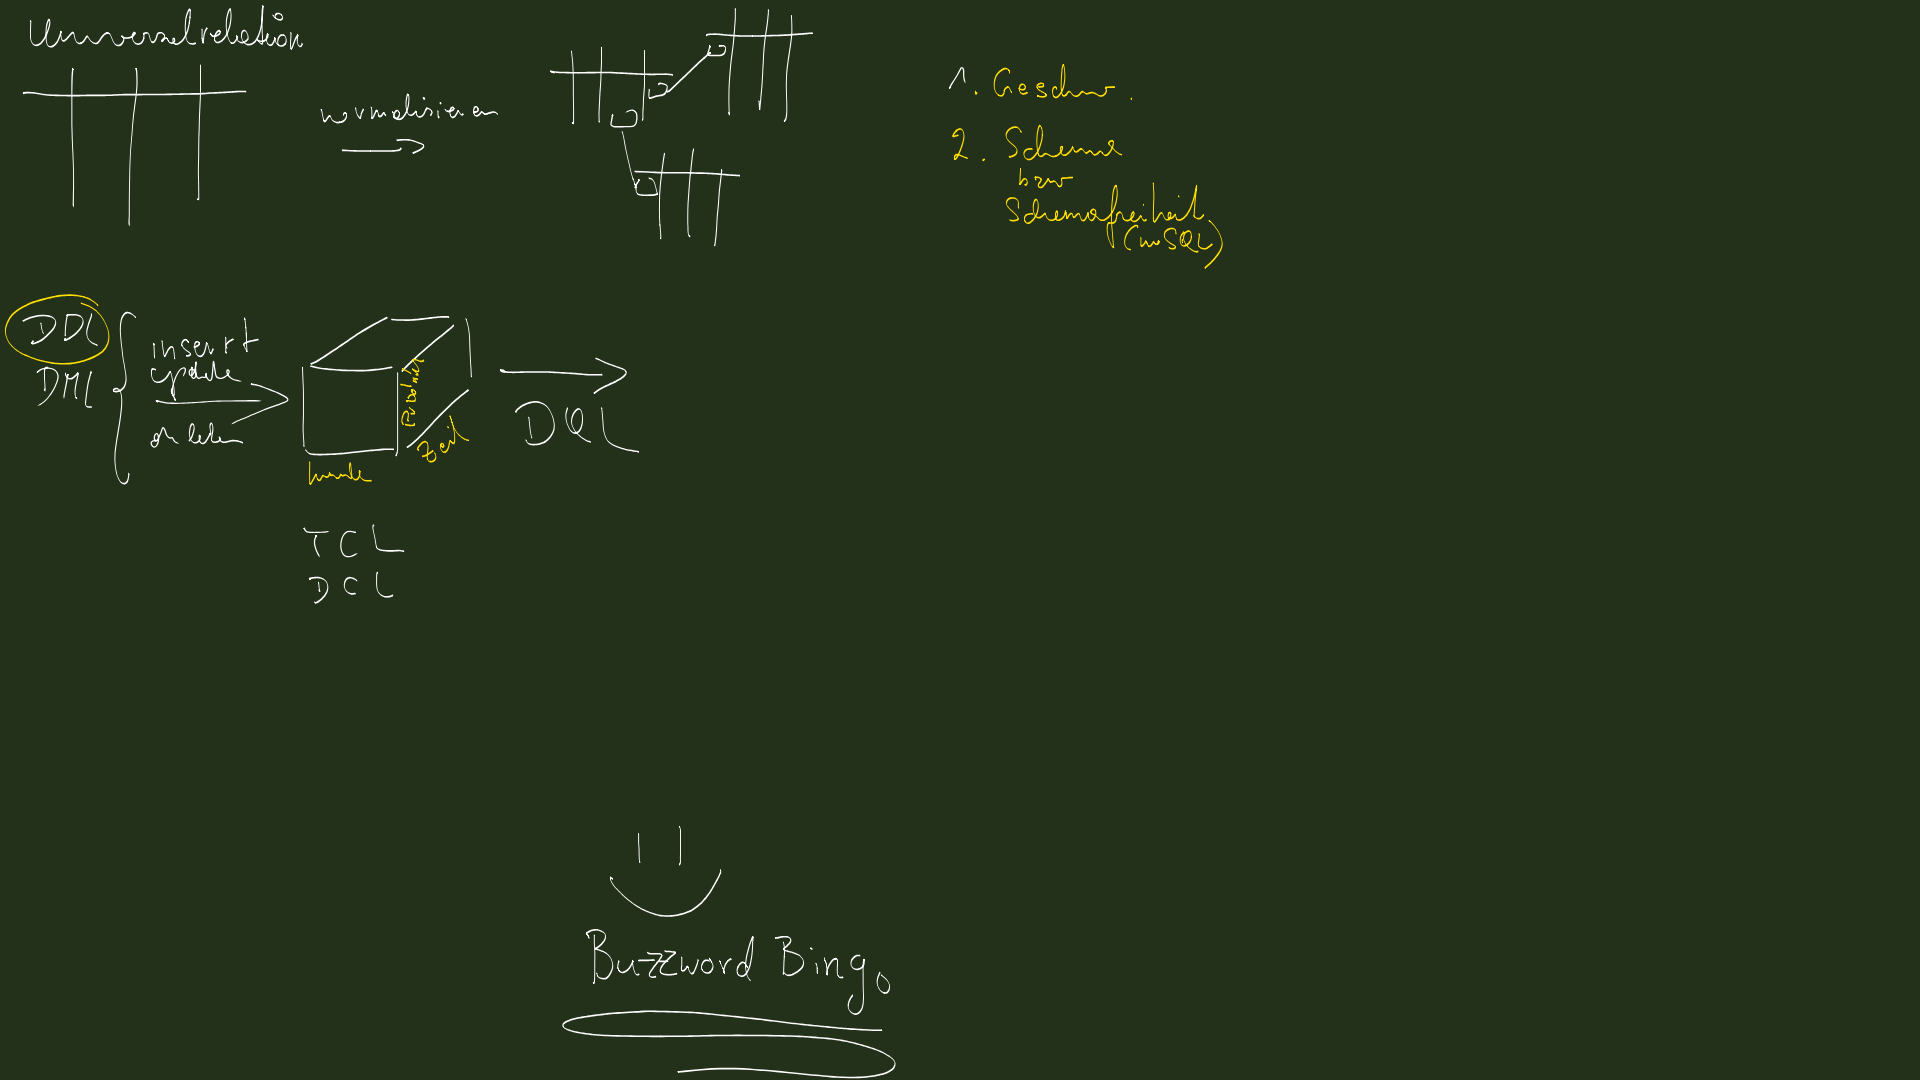 Universalrelation
normalisieren
1. Geschw.
2. Schema
bzw
Schemafreiheit
(noSQL)
DDL
DML
insert
update
delete
Produkt
Zeit
Kunde
DQL
TCL
DCL
Buzzword Bingo